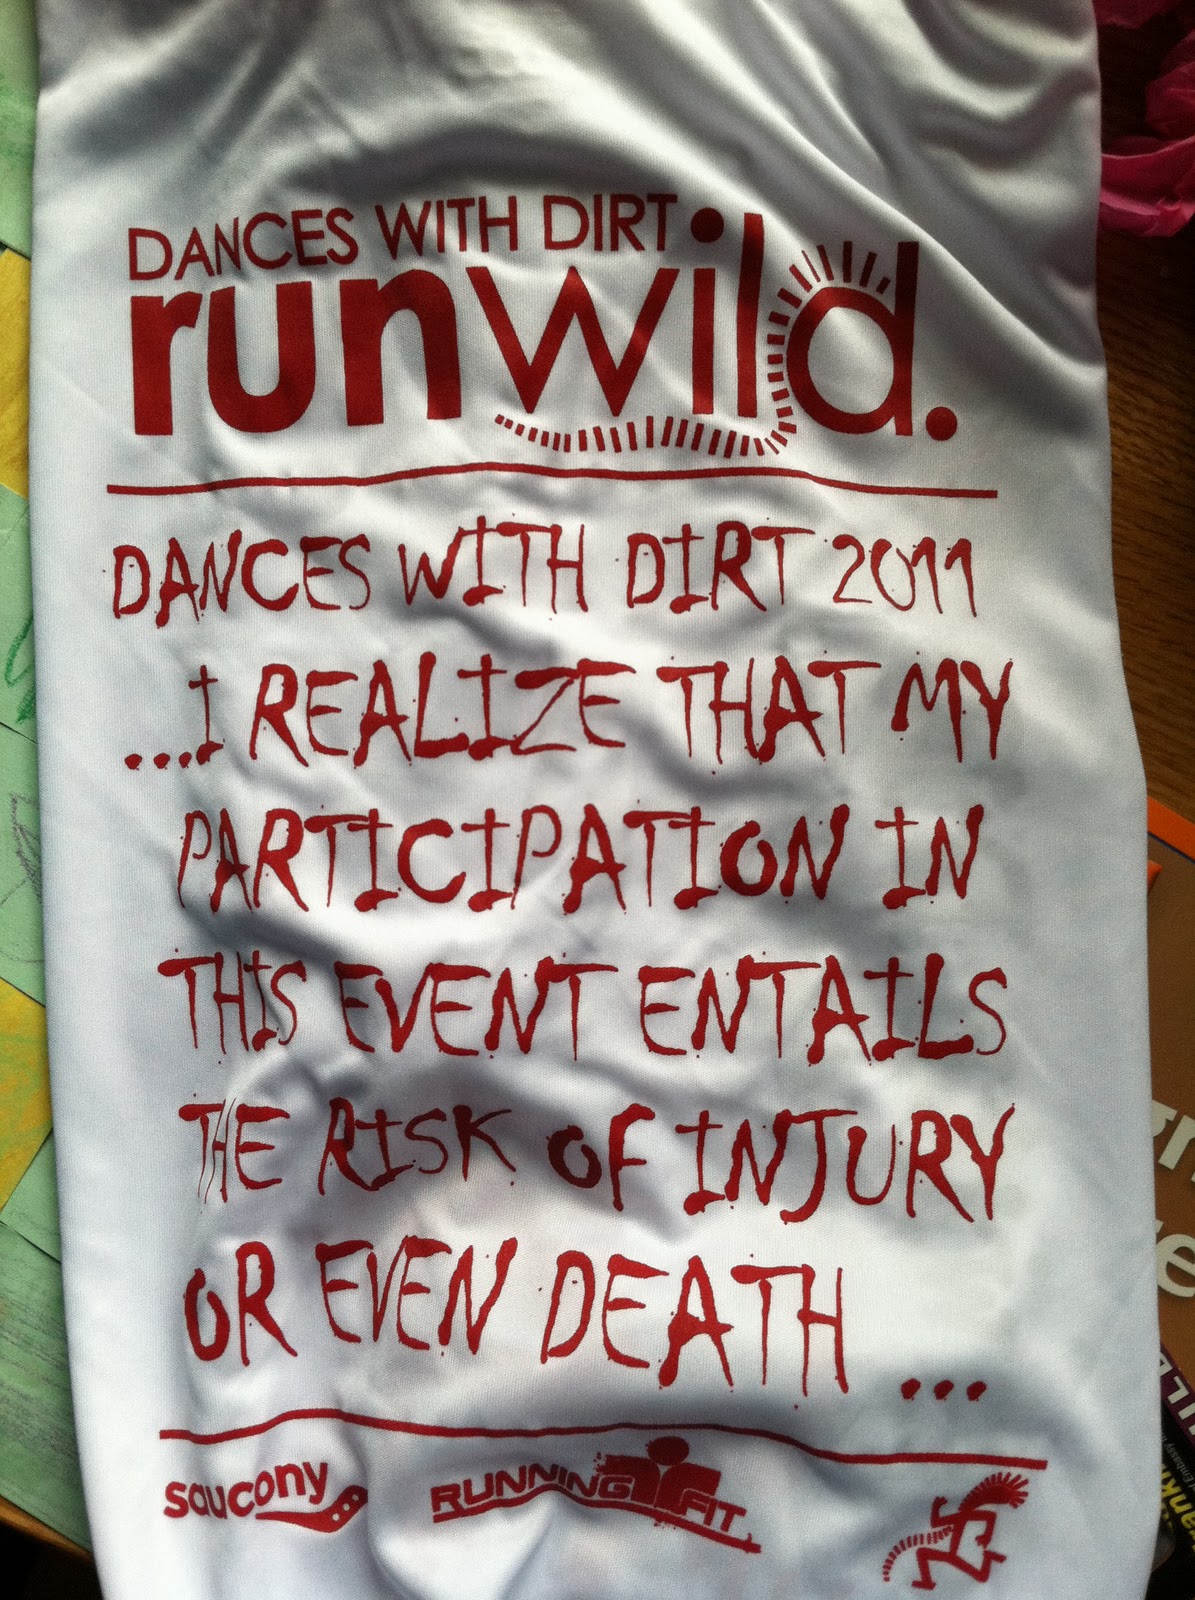 DANCES WITH DIRT
runwild.
DANCES WITH DIRT 2011
...I REALIZE THAT MY
PARTICIPATION IN
THIS EVENT ENTAILS
THE RISK OF INJURY
OR EVEN DEATH ...
saucony
RUNNING FIT
Embassy